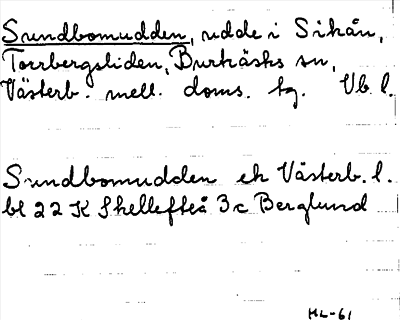 Sundbomudden, udde i Sikån,
Torrbergsliden, Burträsks sn,
Västerb. mell. doms. tg. Vb l.
Sundbomudden ek Västerb. l.
bl 22 K Skellefteå 3c Berglund
HL-61